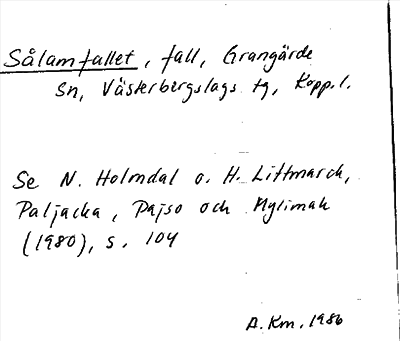 Sålamfallet, fall, Grangärde
Sn, Västerbergslags tg, Kopp.l.
Se N. Holmdal o. H. Littmarck,
Paljacka, Pajso och Mylimak
(1980), s. 104
A. Km. 1986